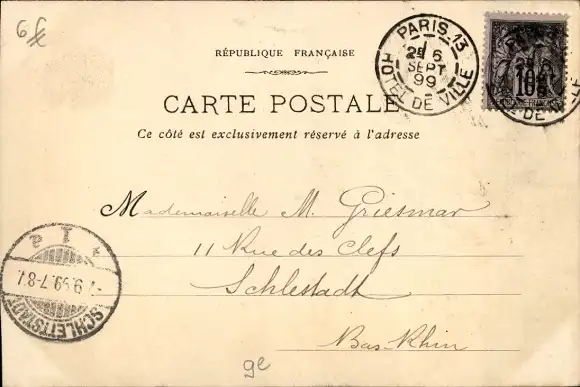 6 f
RÉPUBLIQUE FRANÇAISE
CARTE POSTALE
Ce côté est exclusivement réservé à l'adresse
PARIS. 13
6
SEPT
99
HOTEL DE VILLE
10
Mademoiselle M. Griesmar
11 Rue des Clefs
Schlestadt
Bas-Rhin
SCHLETTSTADT
7.9.99.7-8
ge